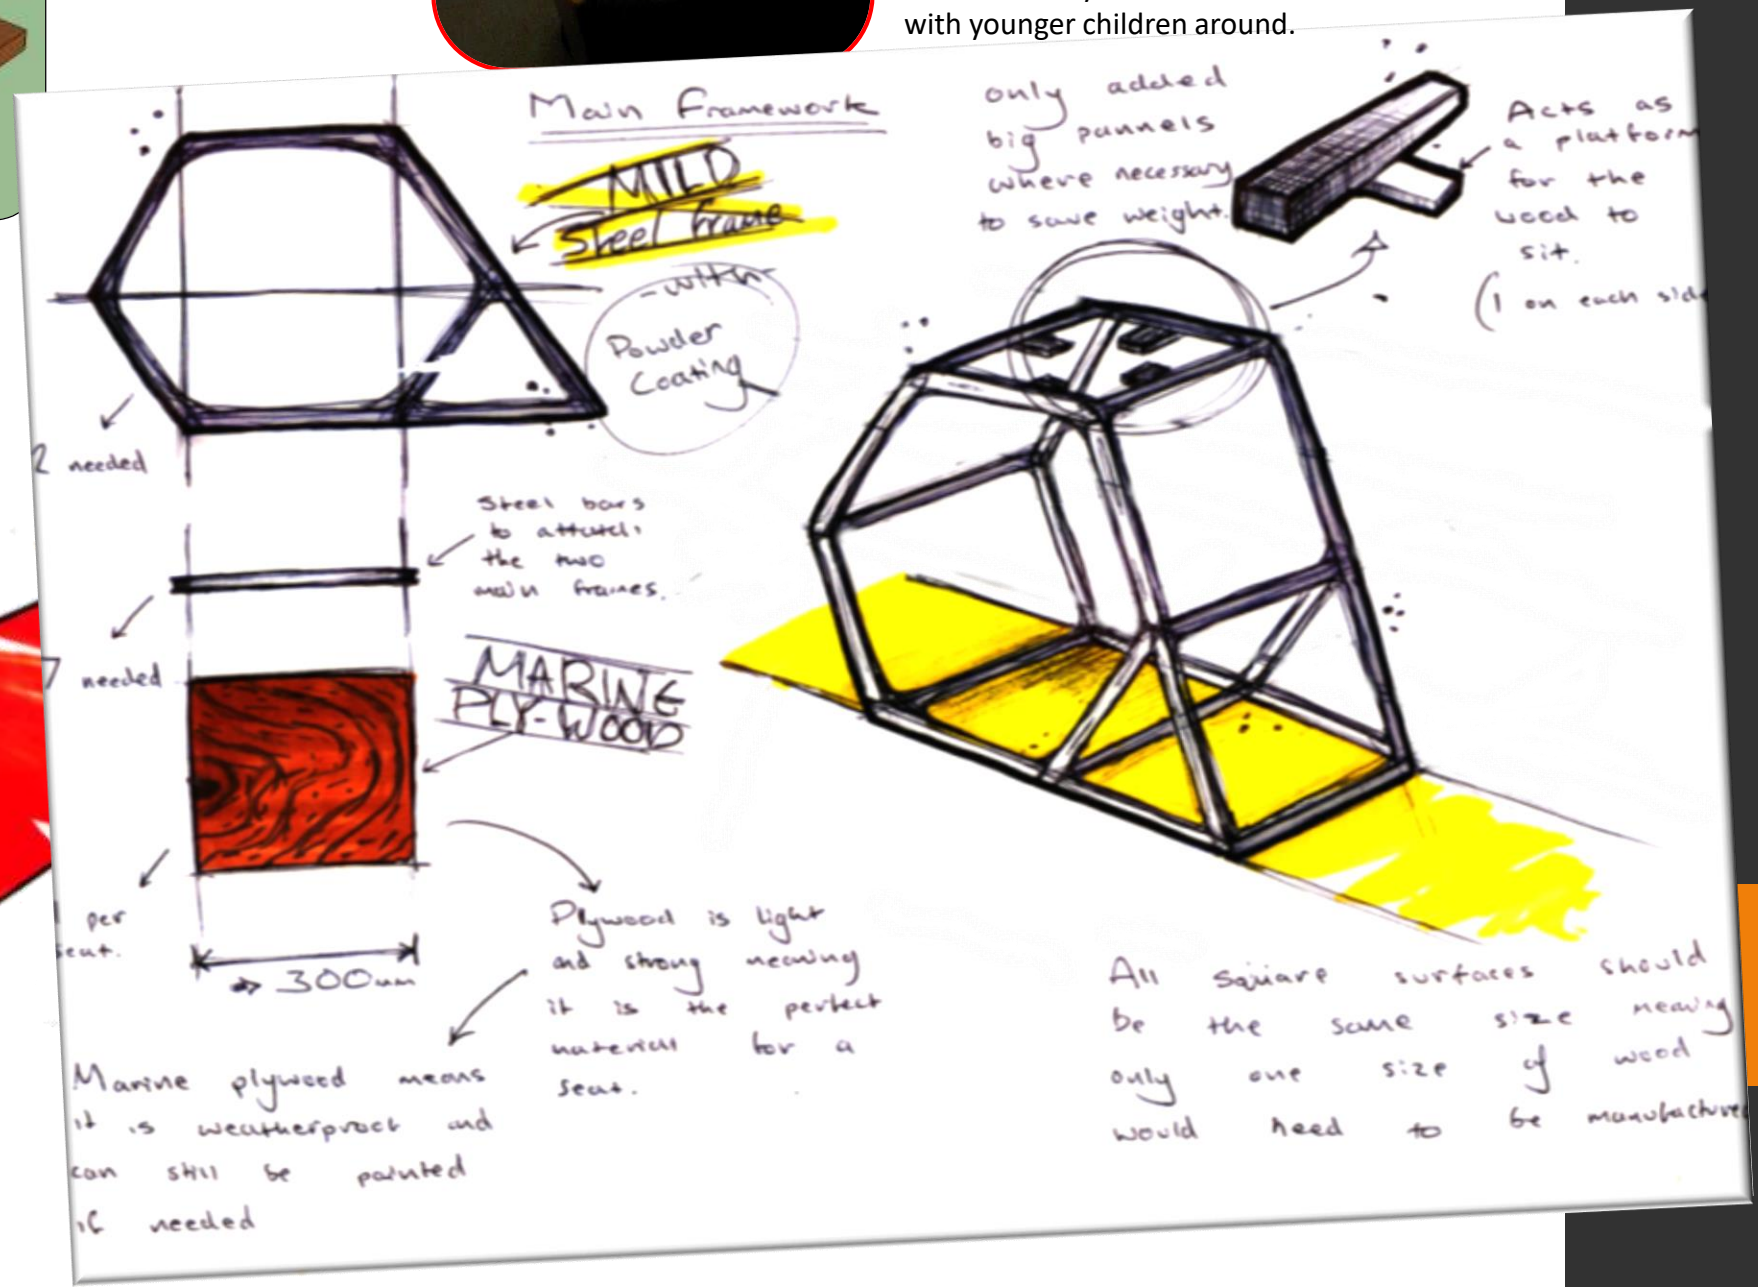 with younger children around.
Main Framework
MILD
Steel frame
- with
Powder
Coating
only added
big pannels
where necessary
to save weight.
Acts as
a platform
for the
wood to
sit.
(1 on each side
2 needed
Steel bars
to attatch
the two
main frames.
7 needed
MARINE
PLY-WOOD
1 per
seat.
300mm
Plywood is light
and strong meaning
it is the perfect
material for a
seat.
Marine plywood means
it is weatherproof and
can still be painted
if needed
All square surfaces should
be the same size meaning
only one size of wood
would need to be manufactured